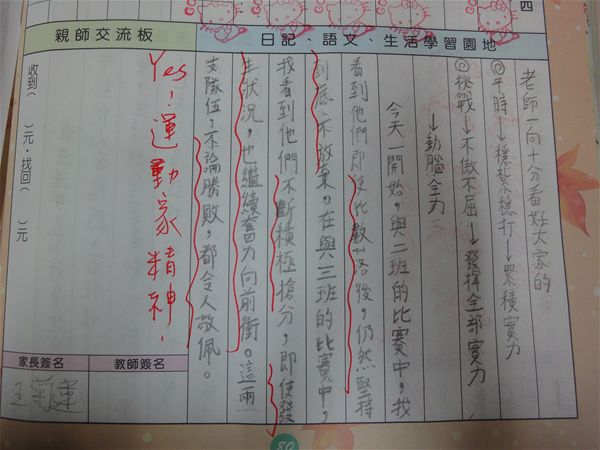 四
日記、語文、生活學習園地
老師一向十分看好大家的
①平時→穩紮穩打→累積實力
②挑戰→不傲不屈→發揮全部實力
→動腦全力
今天一開始，與二班的比賽中，我
看到他們即使比數落後，仍然堅持
到底，不放棄。在與三班的比賽中，
我看到他們不斷積極搶分，即使發
生狀況，也繼續奮力向前衝。這兩
支隊伍，不論勝敗，都令人敬佩。
親師交流板
Yes！運動家精神．
收到（　）元，找回（　）元
教師簽名
家長簽名
80